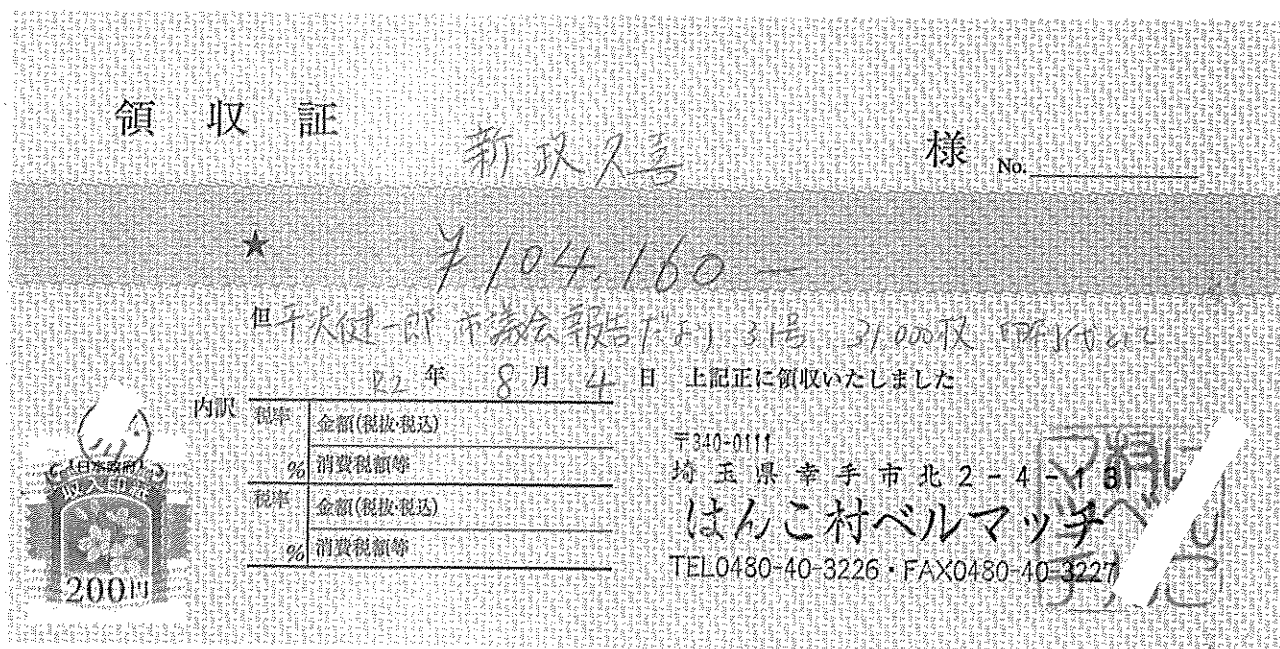 領 収 証
新政久喜 様 No.
★ ¥104,160—
但 平沢健一郎 市議会報告だより 31号 31,000枚 印刷代として
R2 年 8 月 4 日 上記正に領収いたしました
内訳 税率 金額(税抜・税込)
% 消費税額等
税率 金額(税抜・税込)
% 消費税額等
日本政府
収入印紙
200円
〒340-0111
埼玉県幸手市北2-4-13
はんこ村ベルマッチ
TEL0480-40-3226・FAX0480-40-3227